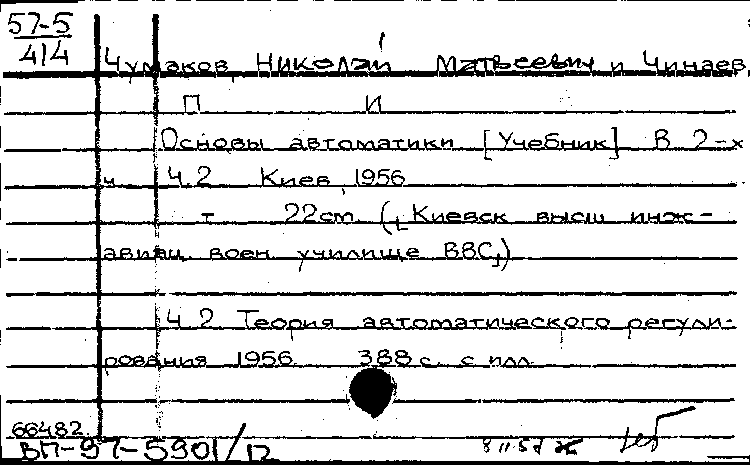 57-5
414
Чумаков, Николай Матвеевич и Чинаев,
П И
Основы автоматики [Учебник] В 2-х
ч Ч.2 Киев, 1956
т 22см. ([Киевск высш инж-
авиац. воен училище ВВС])
Ч.2 Теория автоматического регули-
рования 1956 388 с. с илл
66482
ВП-97-5901/12
8 11.57